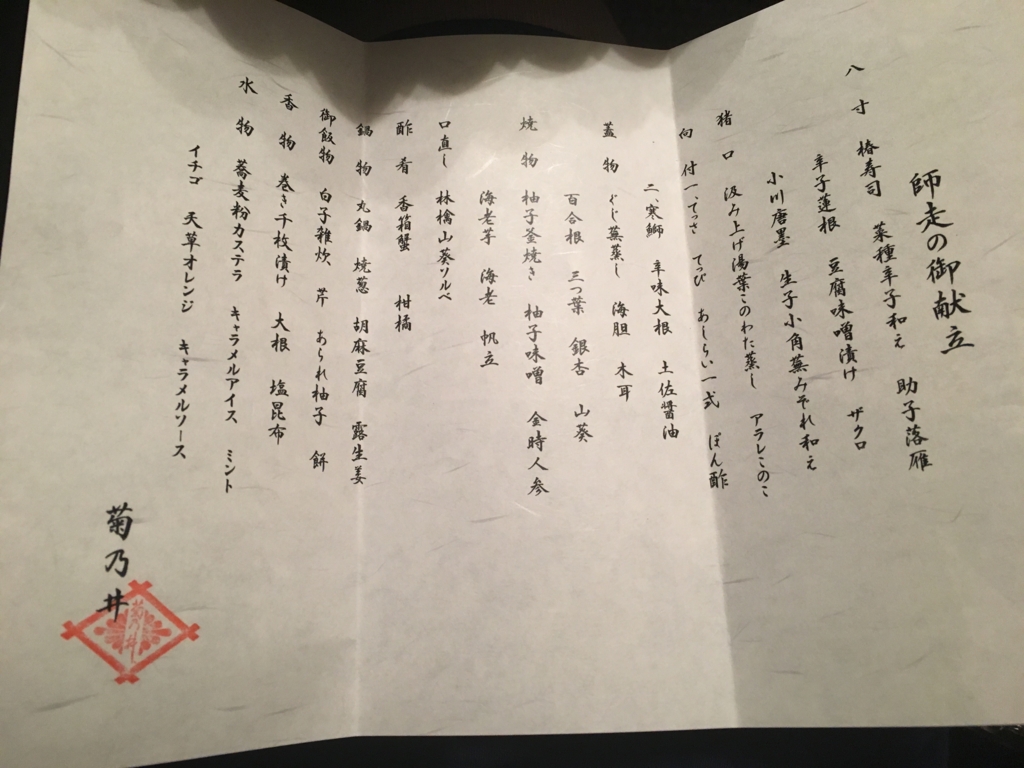 師走の御献立
八寸 椿寿司 菜種辛子和え 助子落雁
辛子蓮根 豆腐味噌漬け ザクロ
小川唐墨 生子小角蕪みぞれ和え
猪口 汲み上げ湯葉このわた蒸し アラレミのこ
向付 一、てっさ てっぴ あしらい一式 ぽん酢
二、寒鰤 辛味大根 土佐醤油
蓋物 ぐじ蕪蒸し 海胆 木耳
百合根 三つ葉 銀杏 山葵
焼物 柚子釜焼き 柚子味噌 金時人参
海老芋 海老 帆立
口直し 林檎山葵ソルベ
酢肴 香箱蟹 柑橘
鍋物 丸鍋 焼葱 胡麻豆腐 露生姜
御飯物 白子雑炊 芹 あられ柚子 餅
香物 巻き千枚漬け 大根 塩昆布
水物 蕎麦粉カステラ キャラメルアイス ミント
イチゴ 天草オレンジ キャラメルソース
菊乃井